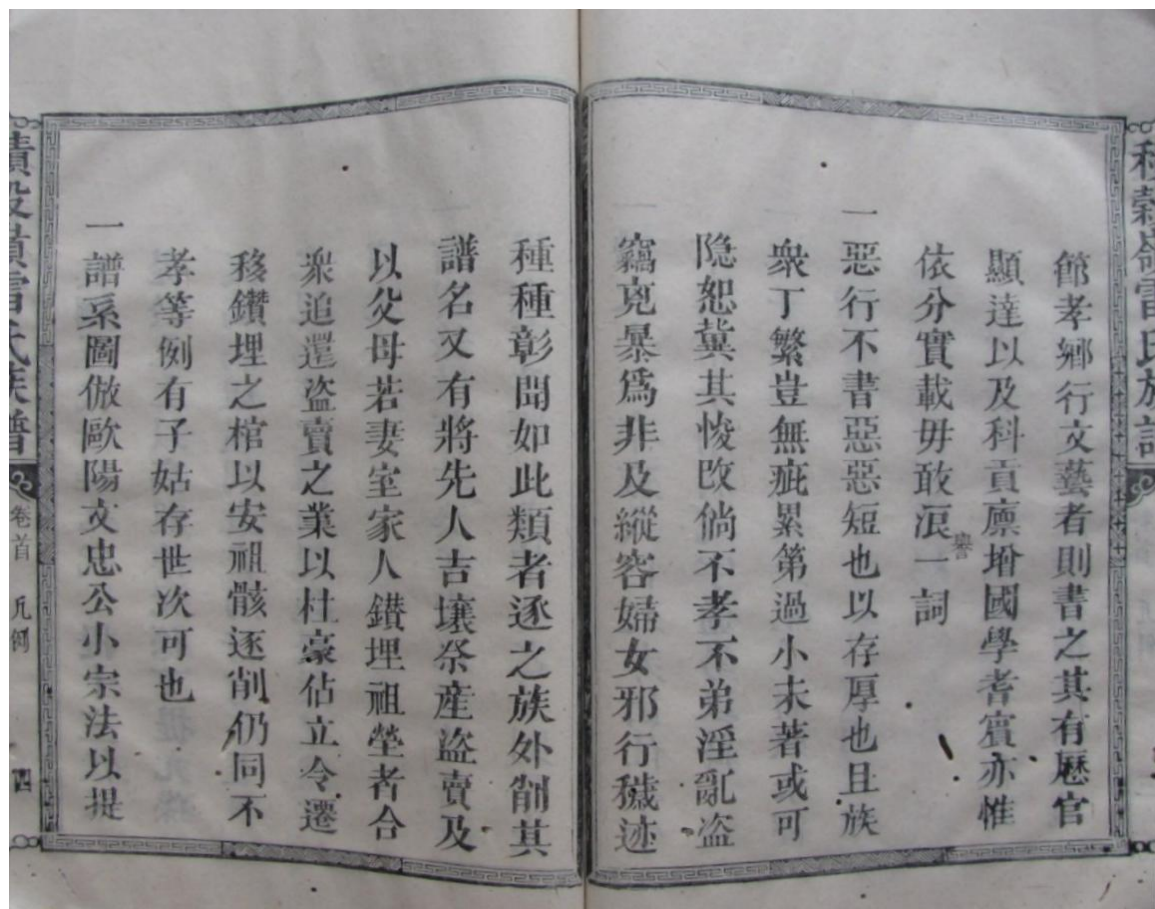 積穀嶺雷氏族譜
節孝鄉行文藝者則書之其有歷官
顯達以及科貢廩增國學耆賓亦惟
依分實載毋敢浪一詞
譽
一惡行不書惡惡短也以存厚也且族
衆丁繁豈無疵累第過小未著或可
隐恕冀其悛改倘不孝不弟淫亂盗
竊兇暴爲非及縱容婦女邪行穢迹
種種彰聞如此類者逐之族外削其
譜名又有將先人吉壤祭産盗賣及
以父母若妻室家人鑚埋祖塋者合
衆追還盗賣之業以杜豪佔立令遷
移鑚埋之棺以安祖骸逐削仍同不
孝等例有子姑存世次可也
一譜系圖倣歐陽文忠公小宗法以提
積穀嶺雷氏族譜
卷首
凡例
四